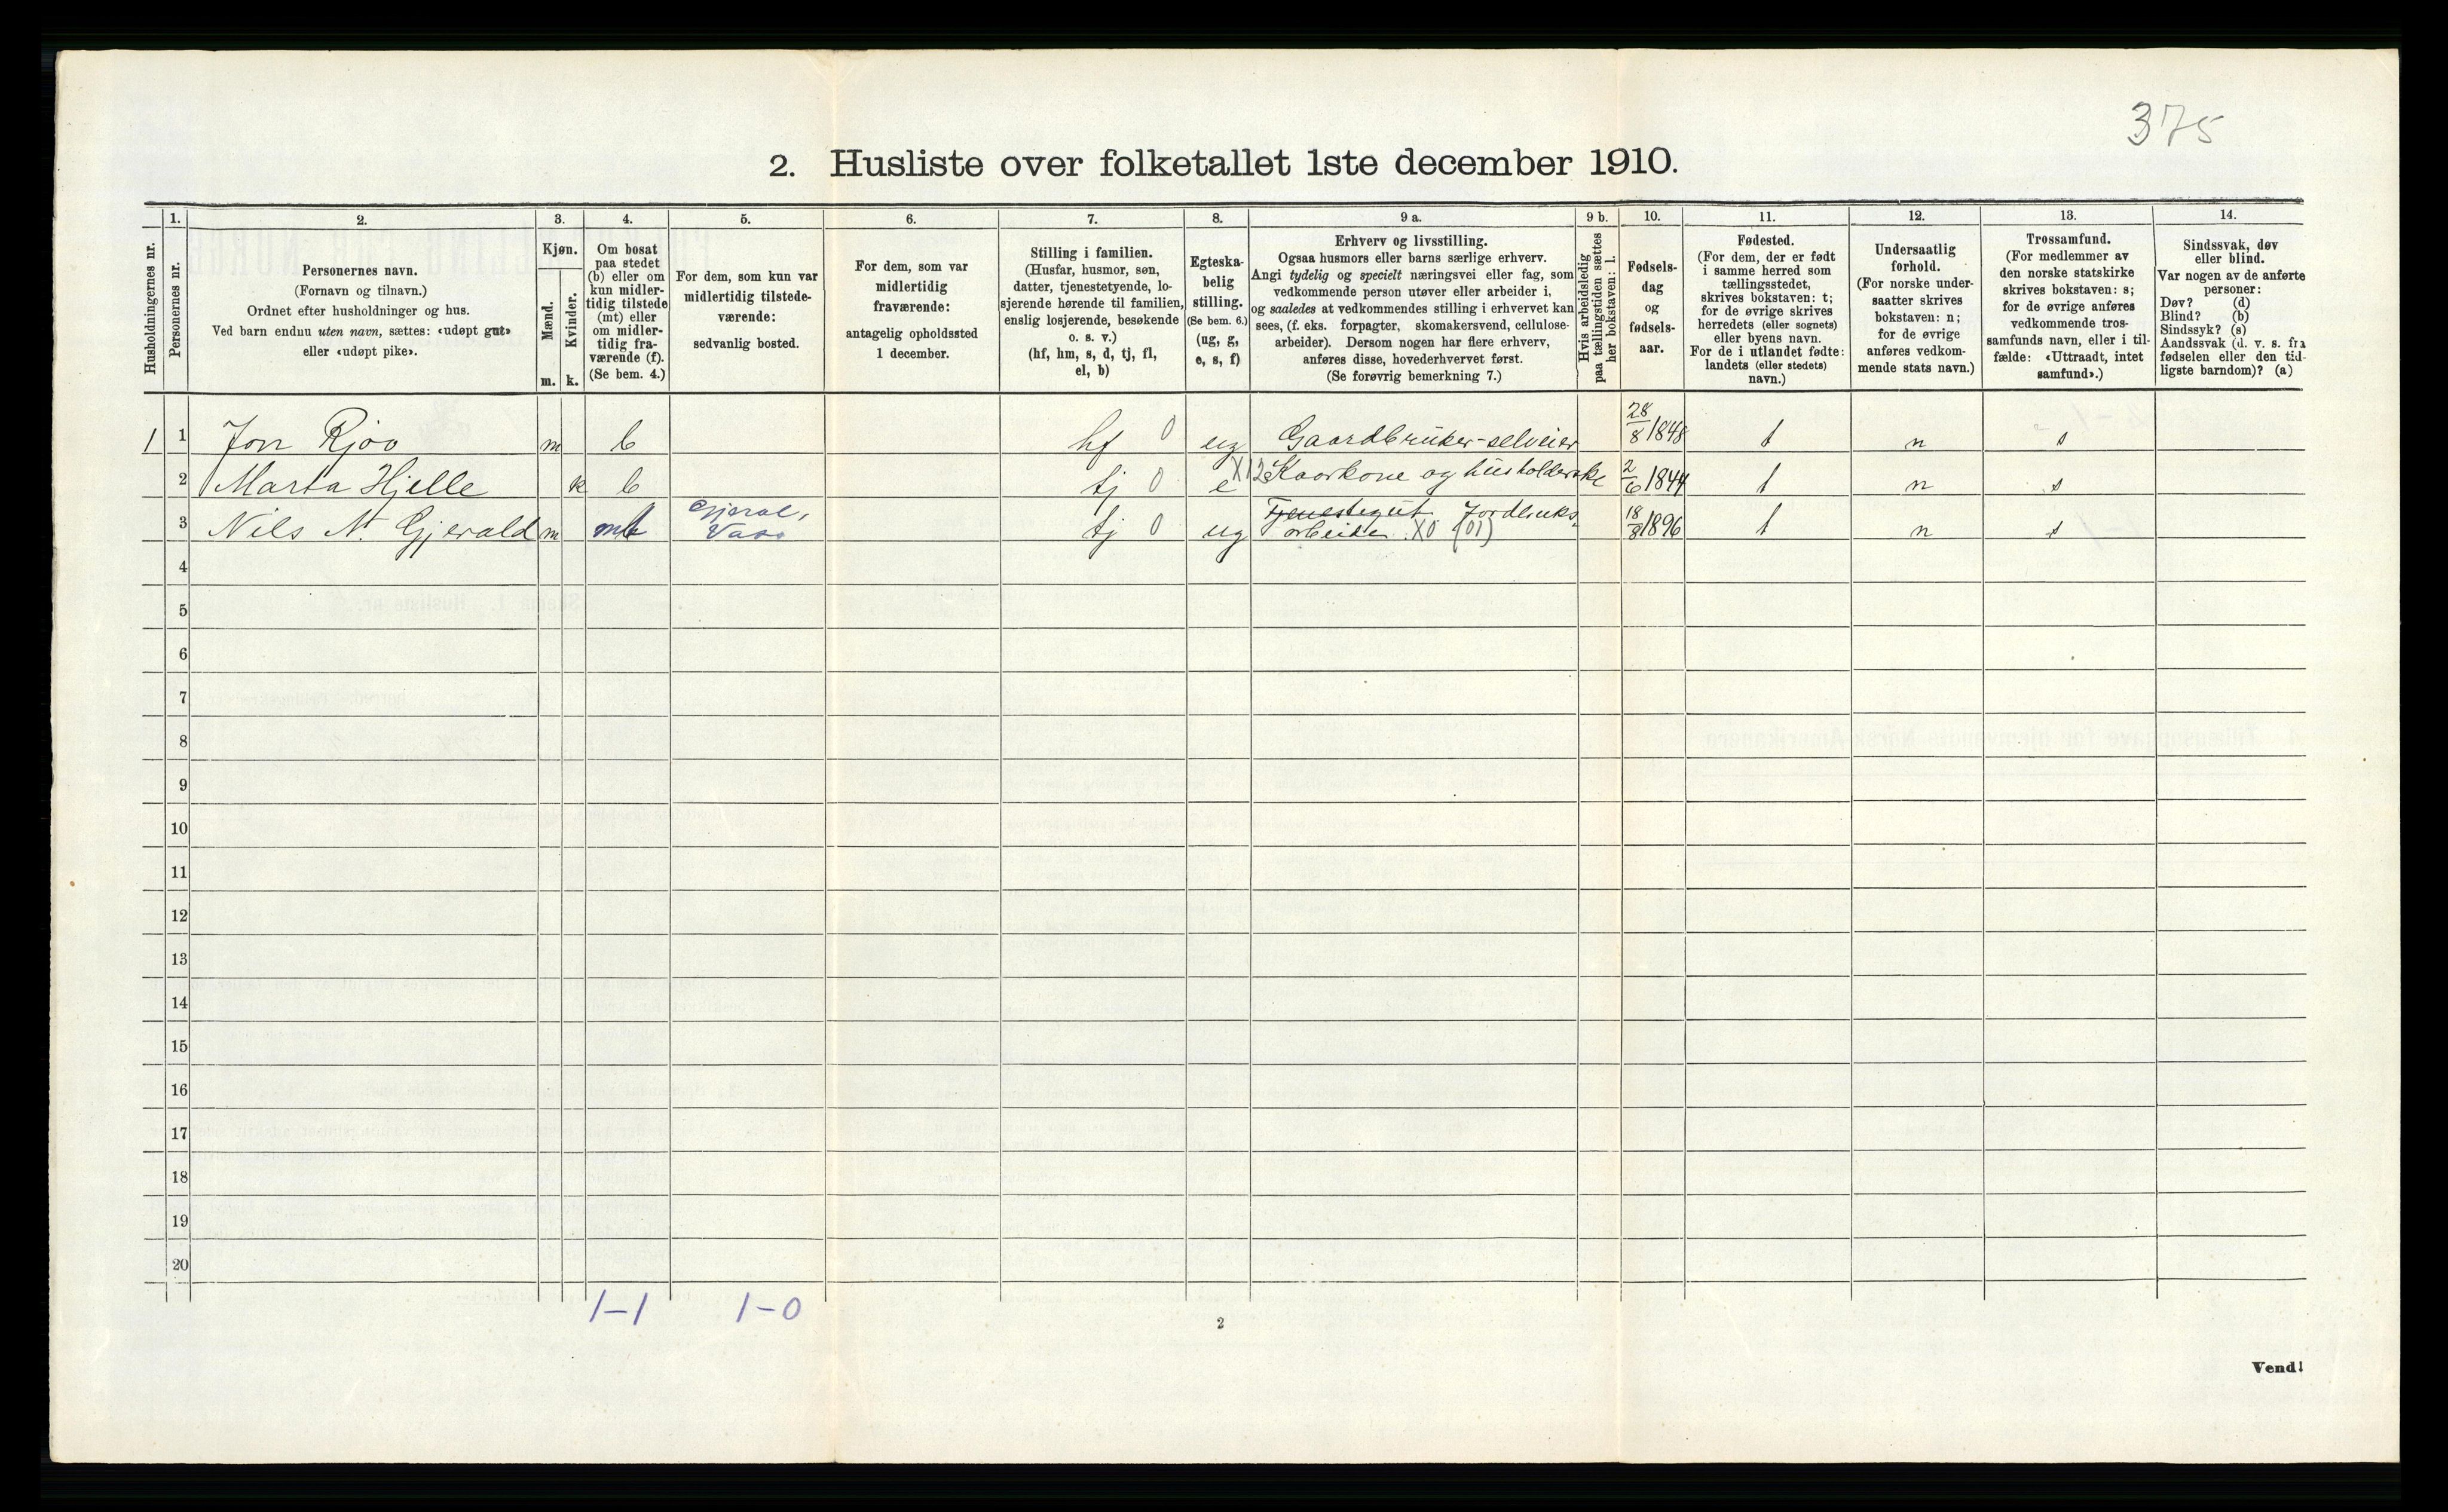 375
2. Husliste over folketallet 1ste december 1910.
Husholdningernes nr.
1.
Personernes nr.
2.
Personernes navn.
(Fornavn og tilnavn.)
Ordnet efter husholdninger og hus.
Ved barn endnu uten navn, sættes: «udøpt gut»
eller «udøpt pike».
3.
Kjøn.
Mænd.
Kvinder.
m. k.
4.
Om bosat
paa stedet
(b) eller om
kun midler-
tidig tilstede
(mt) eller
om midler-
tidig fra-
værende (f).
(Se bem. 4.)
5.
For dem, som kun var
midlertidig tilstede-
værende:
sedvanlig bosted.
6.
For dem, som var
midlertidig
fraværende:
antagelig opholdssted
1 december.
7.
Stilling i familien.
(Husfar, husmor, søn,
datter, tjenestetyende, lo-
sjerende hørende til familien,
enslig losjerende, besøkende
o. s. v.)
(hf, hm, s, d, tj, fl,
el, b)
8.
Egteska-
belig
stilling.
(Se bem. 6.)
(ug, g,
e, s, f)
9 a.
Erhverv og livsstilling.
Ogsaa husmors eller barns særlige erhverv.
Angi tydelig og specielt næringsvei eller fag, som
vedkommende person utøver eller arbeider i,
og saaledes at vedkommendes stilling i erhvervet kan
sees, (f. eks. forpagter, skomakersvend, cellulose-
arbeider). Dersom nogen har flere erhverv,
anføres disse, hovederhvervet først.
(Se forøvrig bemerkning 7.)
9 b.
Hvis arbeidsledig
paa tællingstiden sættes
her bokstaven: l.
10.
Fødsels-
dag
og
fødsels-
aar.
11.
Fødested.
(For dem, der er født
i samme herred som
tællingsstedet,
skrives bokstaven: t;
for de øvrige skrives
herredets (eller sognets)
eller byens navn.
For de i utlandet fødte:
landets (eller stedets)
navn.)
12.
Undersaatlig
forhold.
(For norske under-
saatter skrives
bokstaven: n;
for de øvrige
anføres vedkom-
mende stats navn.)
13.
Trossamfund.
(For medlemmer av
den norske statskirke
skrives bokstaven: s;
for de øvrige anføres
vedkommende tros-
samfunds navn, eller i til-
fælde: «Uttraadt, intet
samfund».)
14.
Sindssvak, døv
eller blind.
Var nogen av de anførte
personer:
Døv? (d)
Blind? (b)
Sindssyk? (s)
Aandssvak (d. v. s. fra
fødselen eller den tid-
ligste barndom)? (a)
1 1 Jon Rjoo m b hf 0 ug Gaardbruker-selveier 28/8 1848 t n s
2 Marta Hjelle k b tj 0 e X12 Kaarkone og husholderske 2/6 1844 t n s
3 Nils N. Gjerald m mt Gjeral, tj 0 ug Tjenestegut Jordbruks-
arbeider X0 (01) 18/8 1896 t n s
4
5
6
7
8
9
10
11
12
13
14
15
16
17
18
19
20
1-1 1-0
2
Vend!